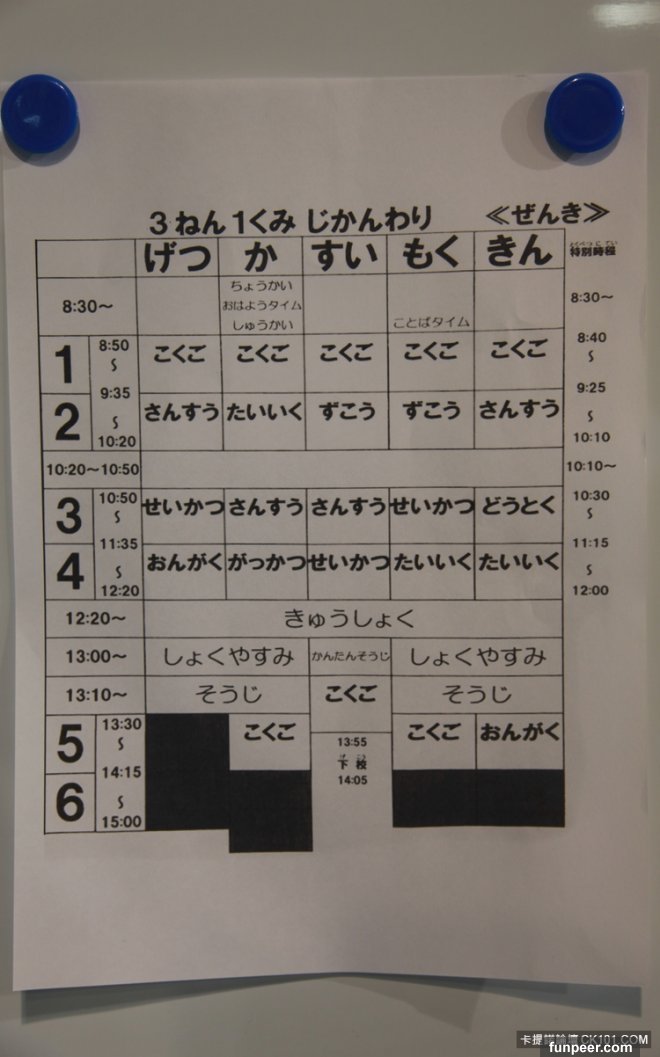 3 ねん 1くみ じかんわり ≪ぜんき≫
げつ か すい もく きん 特別時程
8:30～ ちょうかい おはようタイム しゅうかい ことばタイム 8:30～
1 8:50 ～ 9:35 こくご こくご こくご こくご こくご 8:40 ～ 9:25
2 ～ 10:20 さんすう たいいく ずこう ずこう さんすう ～ 10:10
10:20～10:50 10:10～
3 10:50 ～ 11:35 せいかつ さんすう さんすう せいかつ どうとく 10:30 ～ 11:15
4 ～ 12:20 おんがく がっかつ せいかつ たいいく たいいく ～ 12:00
12:20～ きゅうしょく
13:00～ しょくやすみ かんたんそうじ しょくやすみ
13:10～ そうじ こくご そうじ
5 13:30 ～ 14:15 こくご 13:55 下校 14:05 こくご おんがく
6 ～ 15:00
卡提諾論壇 CK101.COM
funpeer.com